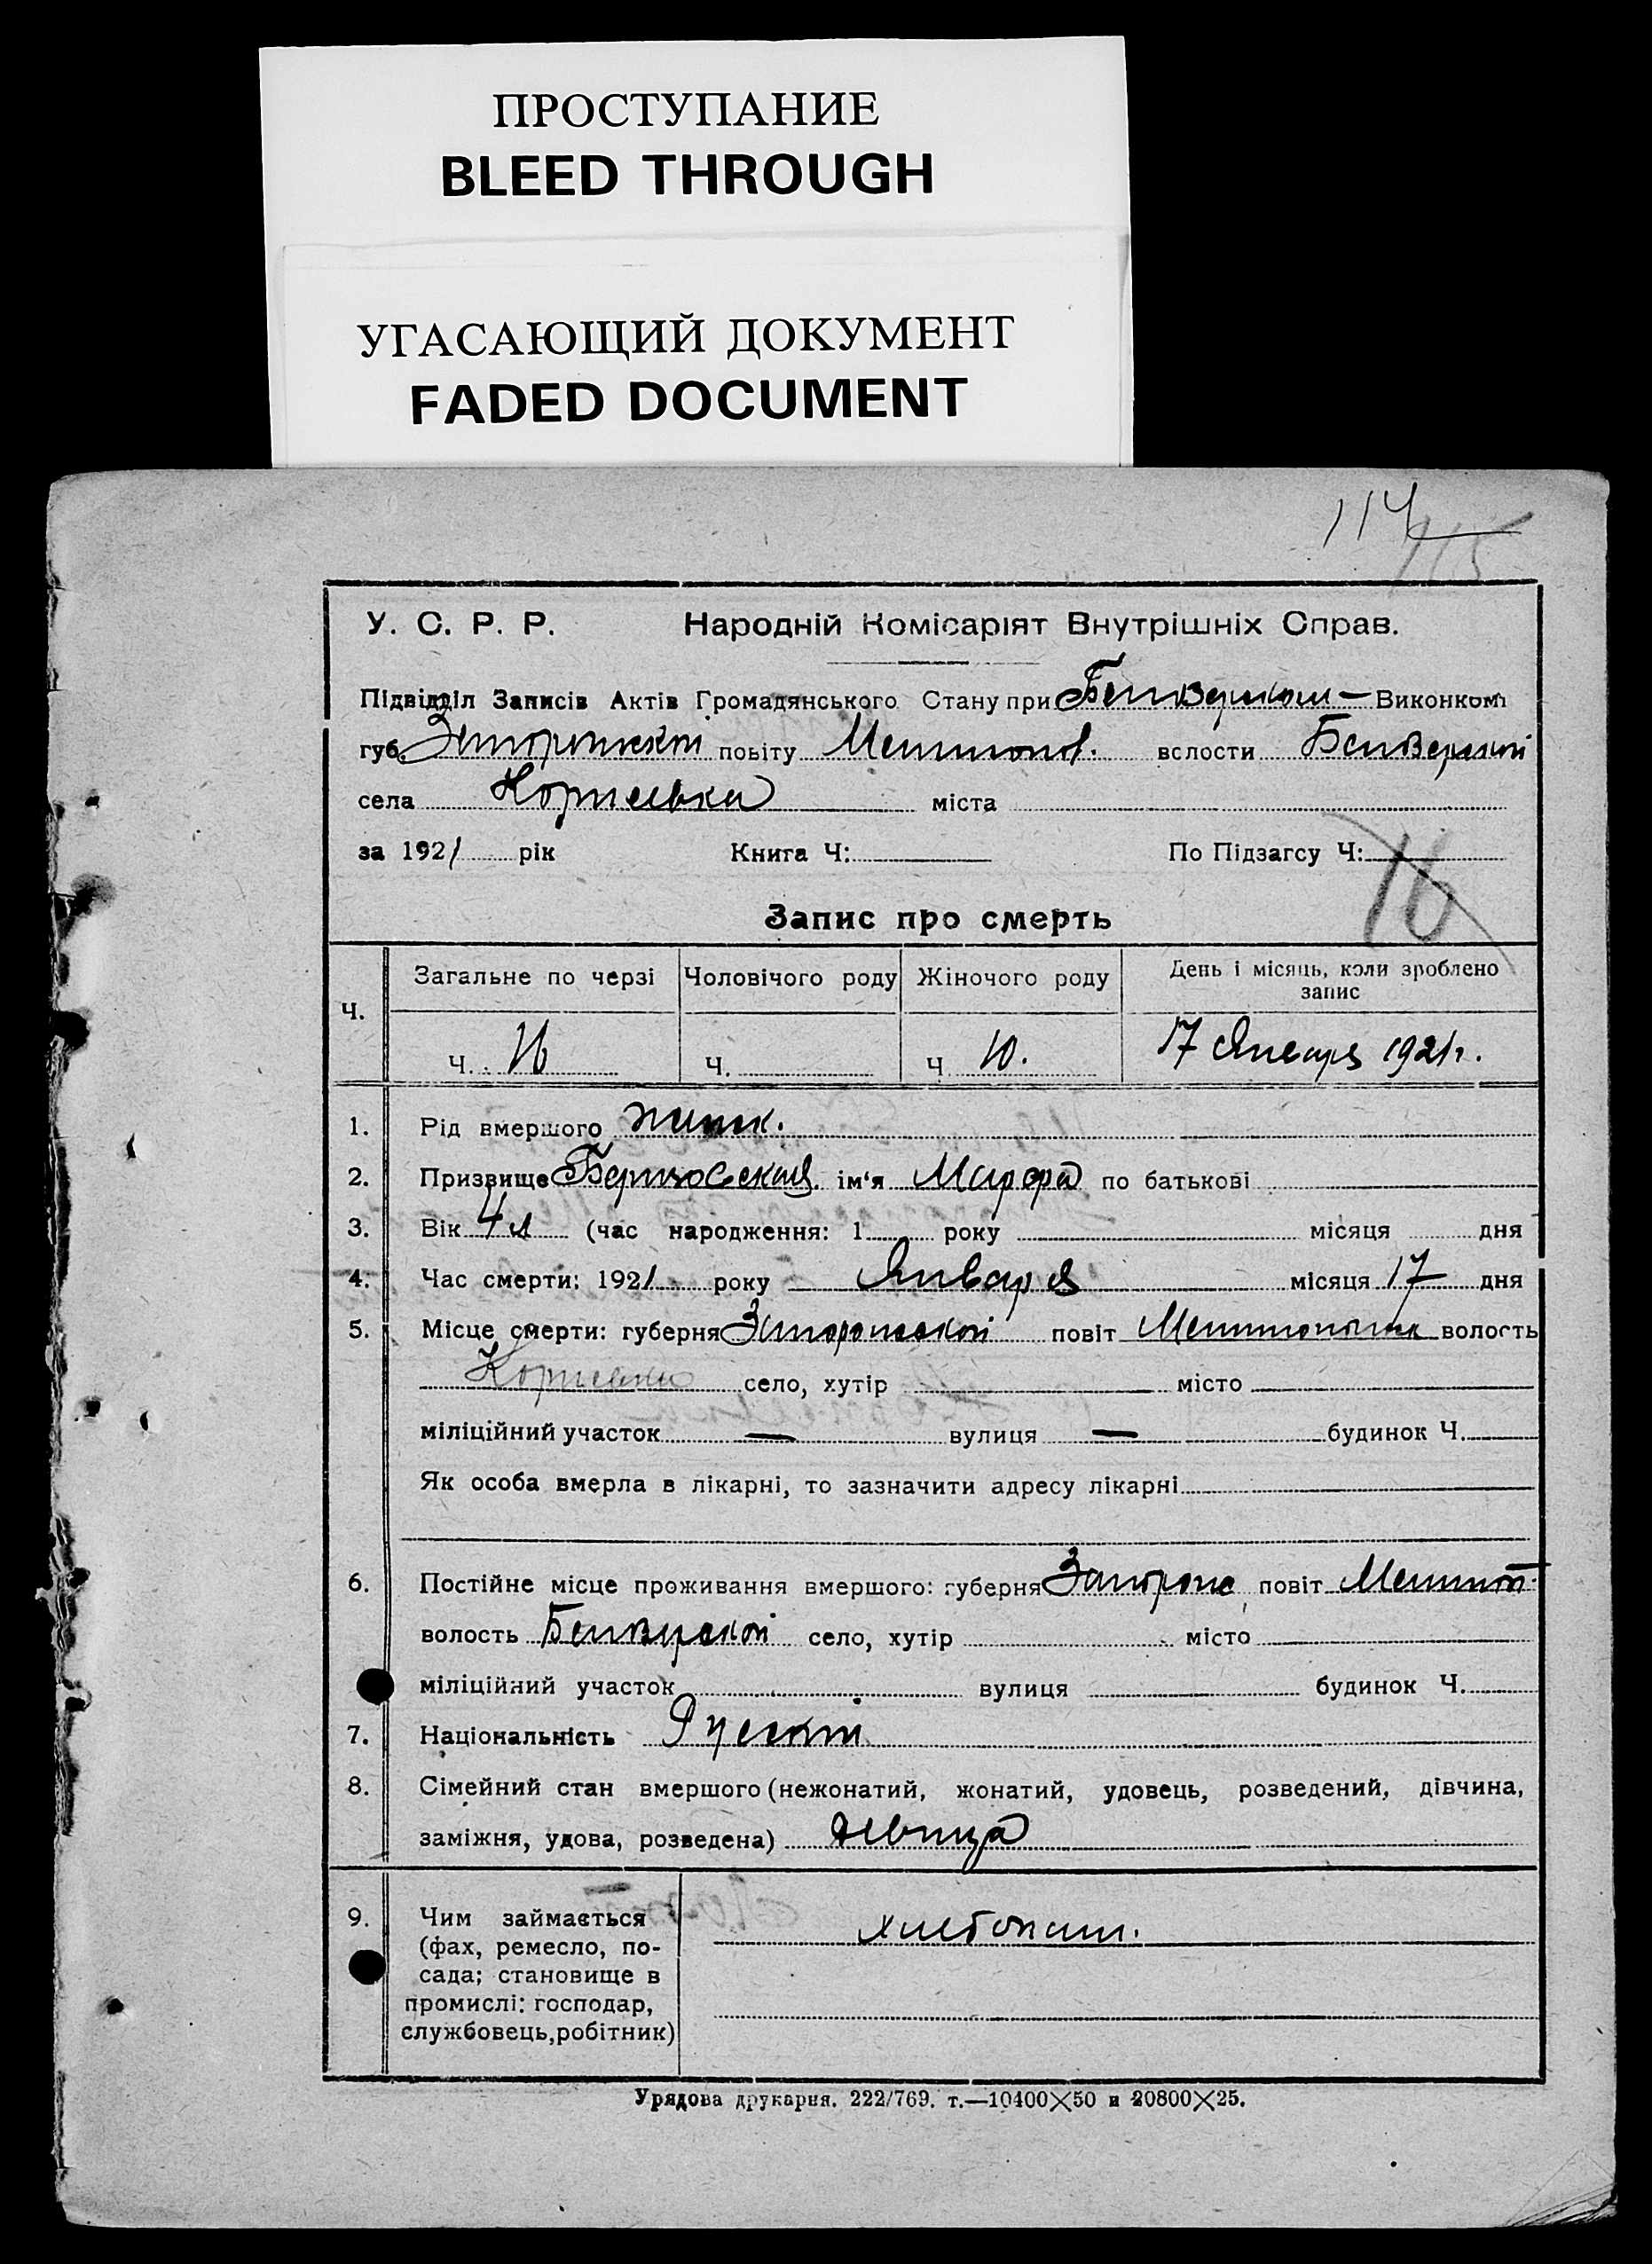 ПРОСТУПАНИЕ
BLEED THROUGH
УГАСАЮЩИЙ ДОКУМЕНТ
FADED DOCUMENT
114
115
У. С. Р. Р. Народній Комісаріят Внутрішніх Справ.
Підвідділ Записів Актів Громадянського Стану при Виконкомі
губ. повіту волости
села міста
за 1921 рік Книга Ч: По Підзагсу Ч: 16
Запис про смерть
Ч. Загальне по черзі Чоловічого роду Жіночого роду День і місяць, коли зроблено запис
Ч. 16 Ч. Ч. 10. 17 Января 1921 г.
1. Рід вмершого женск.
2. Призвище ім'я Марфа по батькові
3. Вік 4 л (час народження: 1 року місяця дня
4. Час смерти: 1921 року Января місяця 17 дня
5. Місце смерти: губерня повіт волость
село, хутір місто
міліційний участок — вулиця — будинок Ч.
Як особа вмерла в лікарні, то зазначити адресу лікарні
6. Постійне місце проживання вмершого: губерня Запорож повіт Мелитоп.
волость село, хутір місто
міліційний участок вулиця будинок Ч.
7. Національність Руский
8. Сімейний стан вмершого (нежонатий, жонатий, удовець, розведений, дівчина,
заміжня, удова, розведена) девица
9. Чим займається хлебопаш.
(фах, ремесло, по-
сада; становище в
промислі: господар,
службовець, робітник)
Урядова друкарня. 222/769. т.—10400×50 и 20800×25.